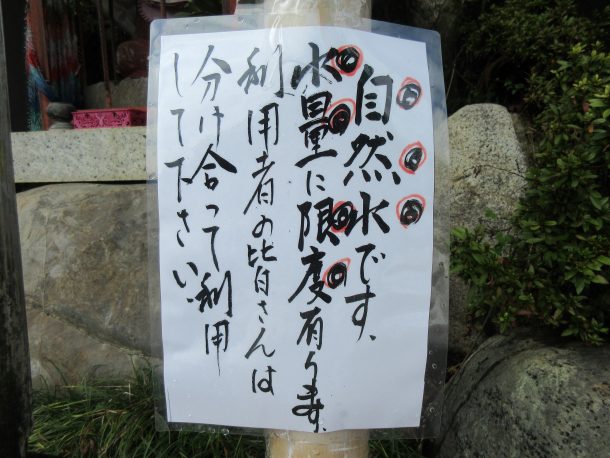 自然水です、
水量に限度有ります。
利用者の皆さんは
分け合って利用
して下さい、